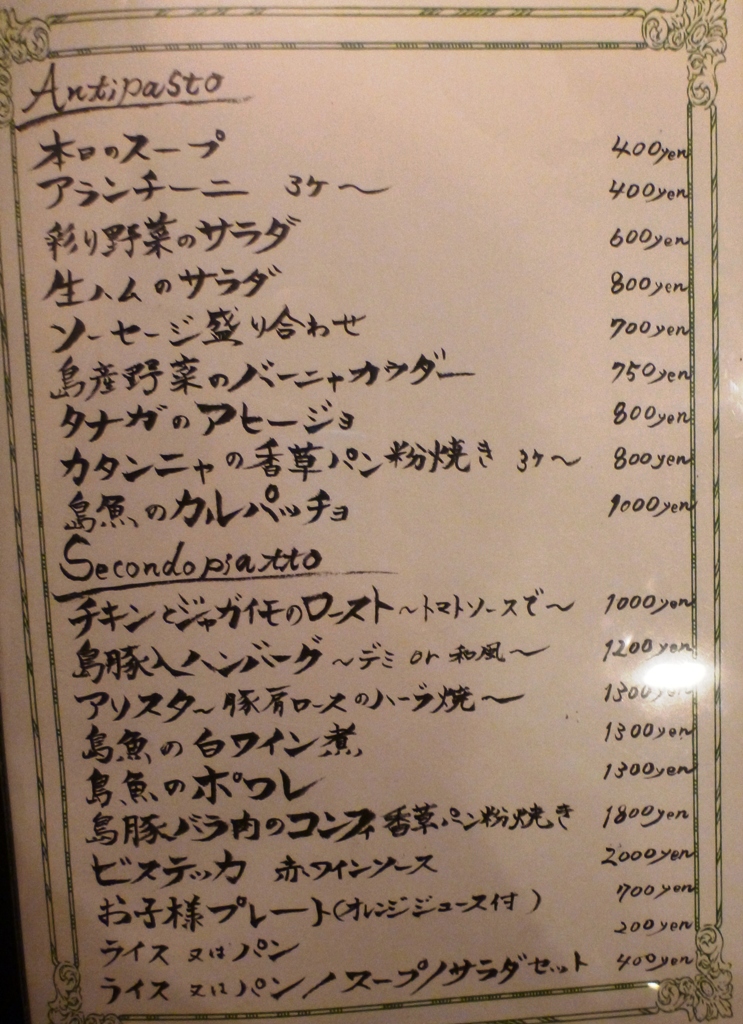 Antipasto
本日のスープ 400yen
アランチーニ 3ケ〜 400yen
彩り野菜のサラダ 600yen
生ハムのサラダ 800yen
ソーセージ盛り合わせ 700yen
島産野菜のバーニャカウダー 750yen
タナガのアヒージョ 800yen
カタンニャの香草パン粉焼き 3ケ〜 800yen
島魚のカルパッチョ 1000yen
Secondopiatto
チキンとジャガイモのロースト〜トマトソースで〜 1000yen
島豚入ハンバーグ〜デミ or 和風〜 1200yen
アリスタ〜豚肩ロースのハーブ焼〜 1300yen
島魚の白ワイン煮 1300yen
島魚のポワレ 1300yen
島豚バラ肉のコンフィ香草パン粉焼き 1800yen
ビステッカ 赤ワインソース 2000yen
お子様プレート(オレンジジュース付) 700yen
ライス 又は パン 200yen
ライス 又は パン/スープ/サラダセット 400yen